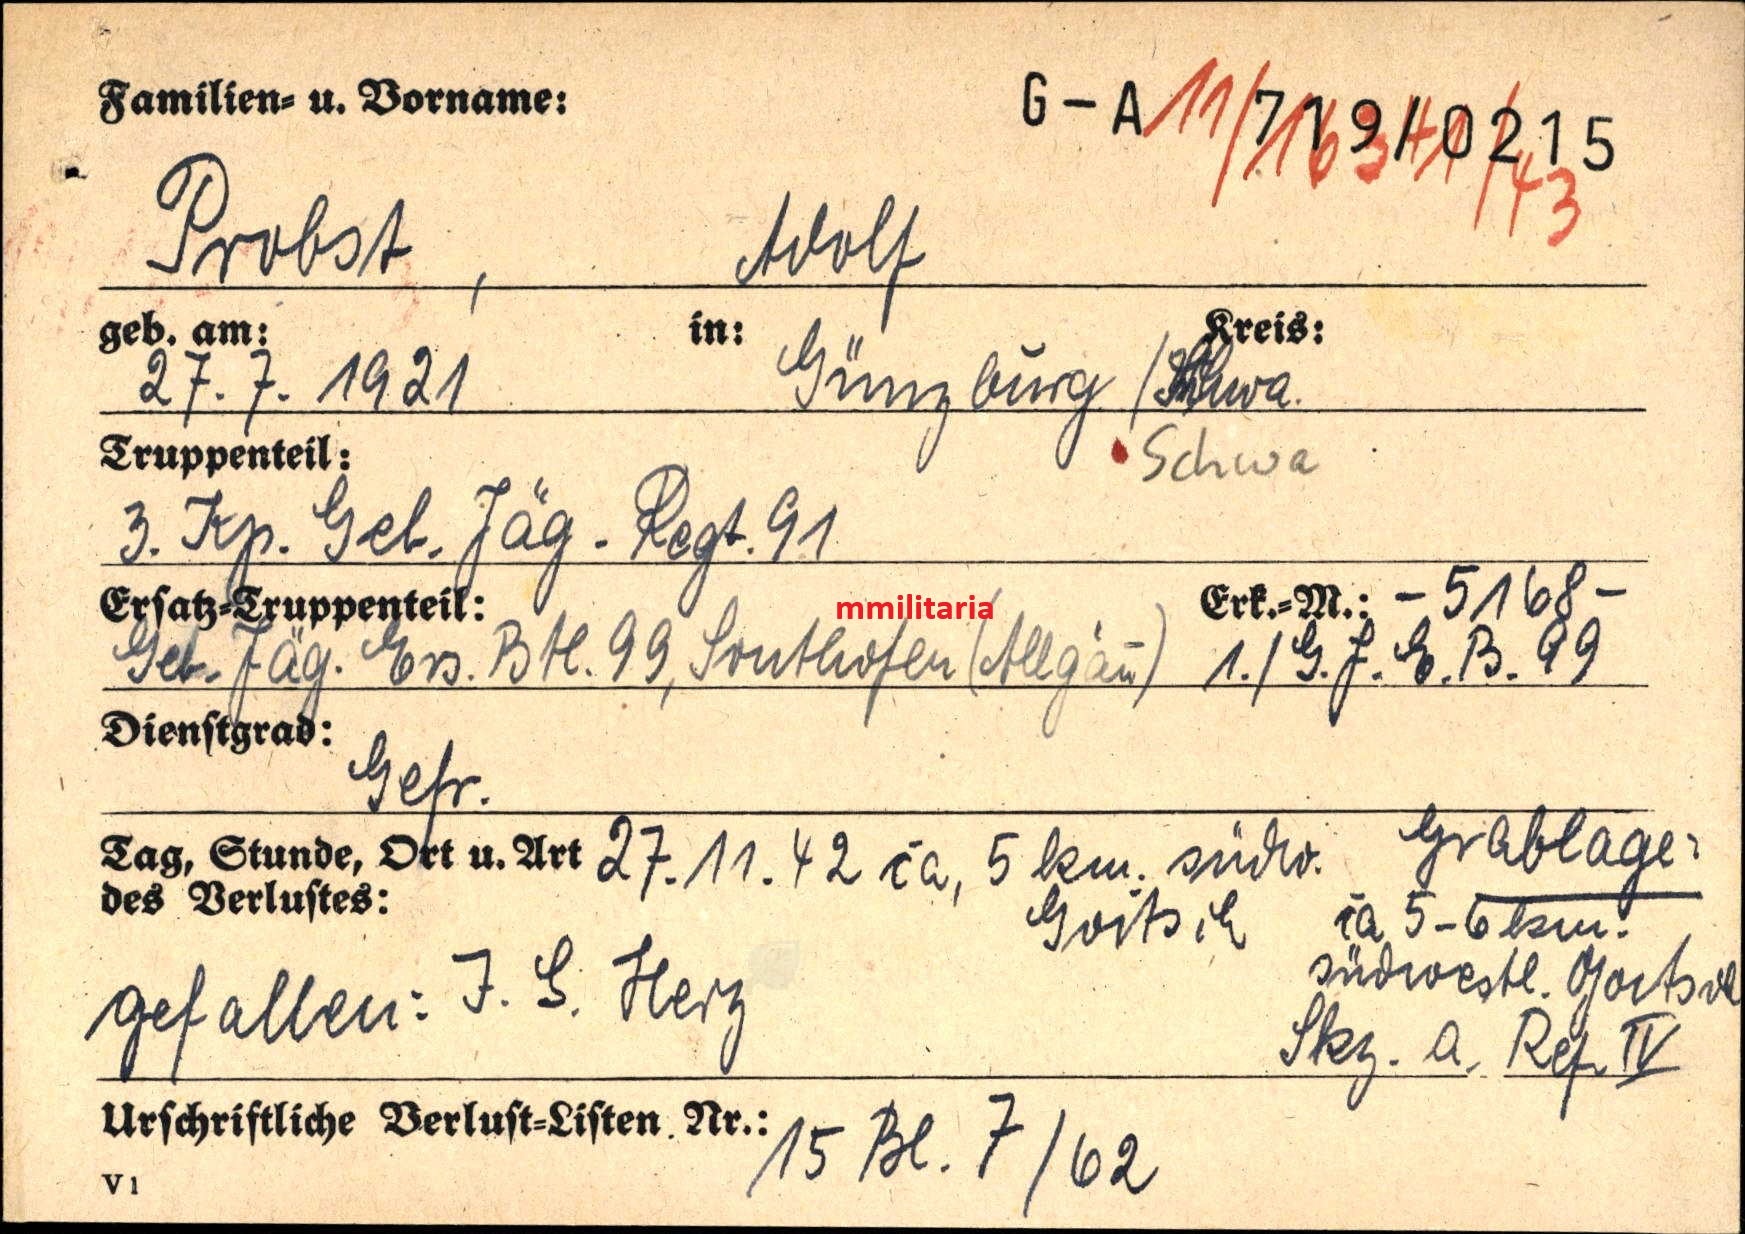 Familien- u. Vorname:
G-A 719/0215
11/
43
Probst, Adolf
geb. am: in: Kreis:
27.7.1921 Günzburg /Schwa.
Schwa
Truppenteil:
3. Kp. Geb. Jäg.-Regt. 91
Ersatz-Truppenteil: Erk.-M.: -5168-
mmilitaria
Geb. Jäg. Ers. Btl. 99, Sonthofen (Allgäu) 1./G.J.E.B. 99
Dienstgrad:
Gefr.
Tag, Stunde, Ort u. Art des Verlustes:
27.11.42 ca, 5 km. südw.
Goitsch
gefallen: I. G. Herz
Grablage:
ca 5-6 km.
südwestl.
Skz. a. Ref. IV
Urschriftliche Verlust-Listen Nr.: 15 Bl. 7/62
V 1